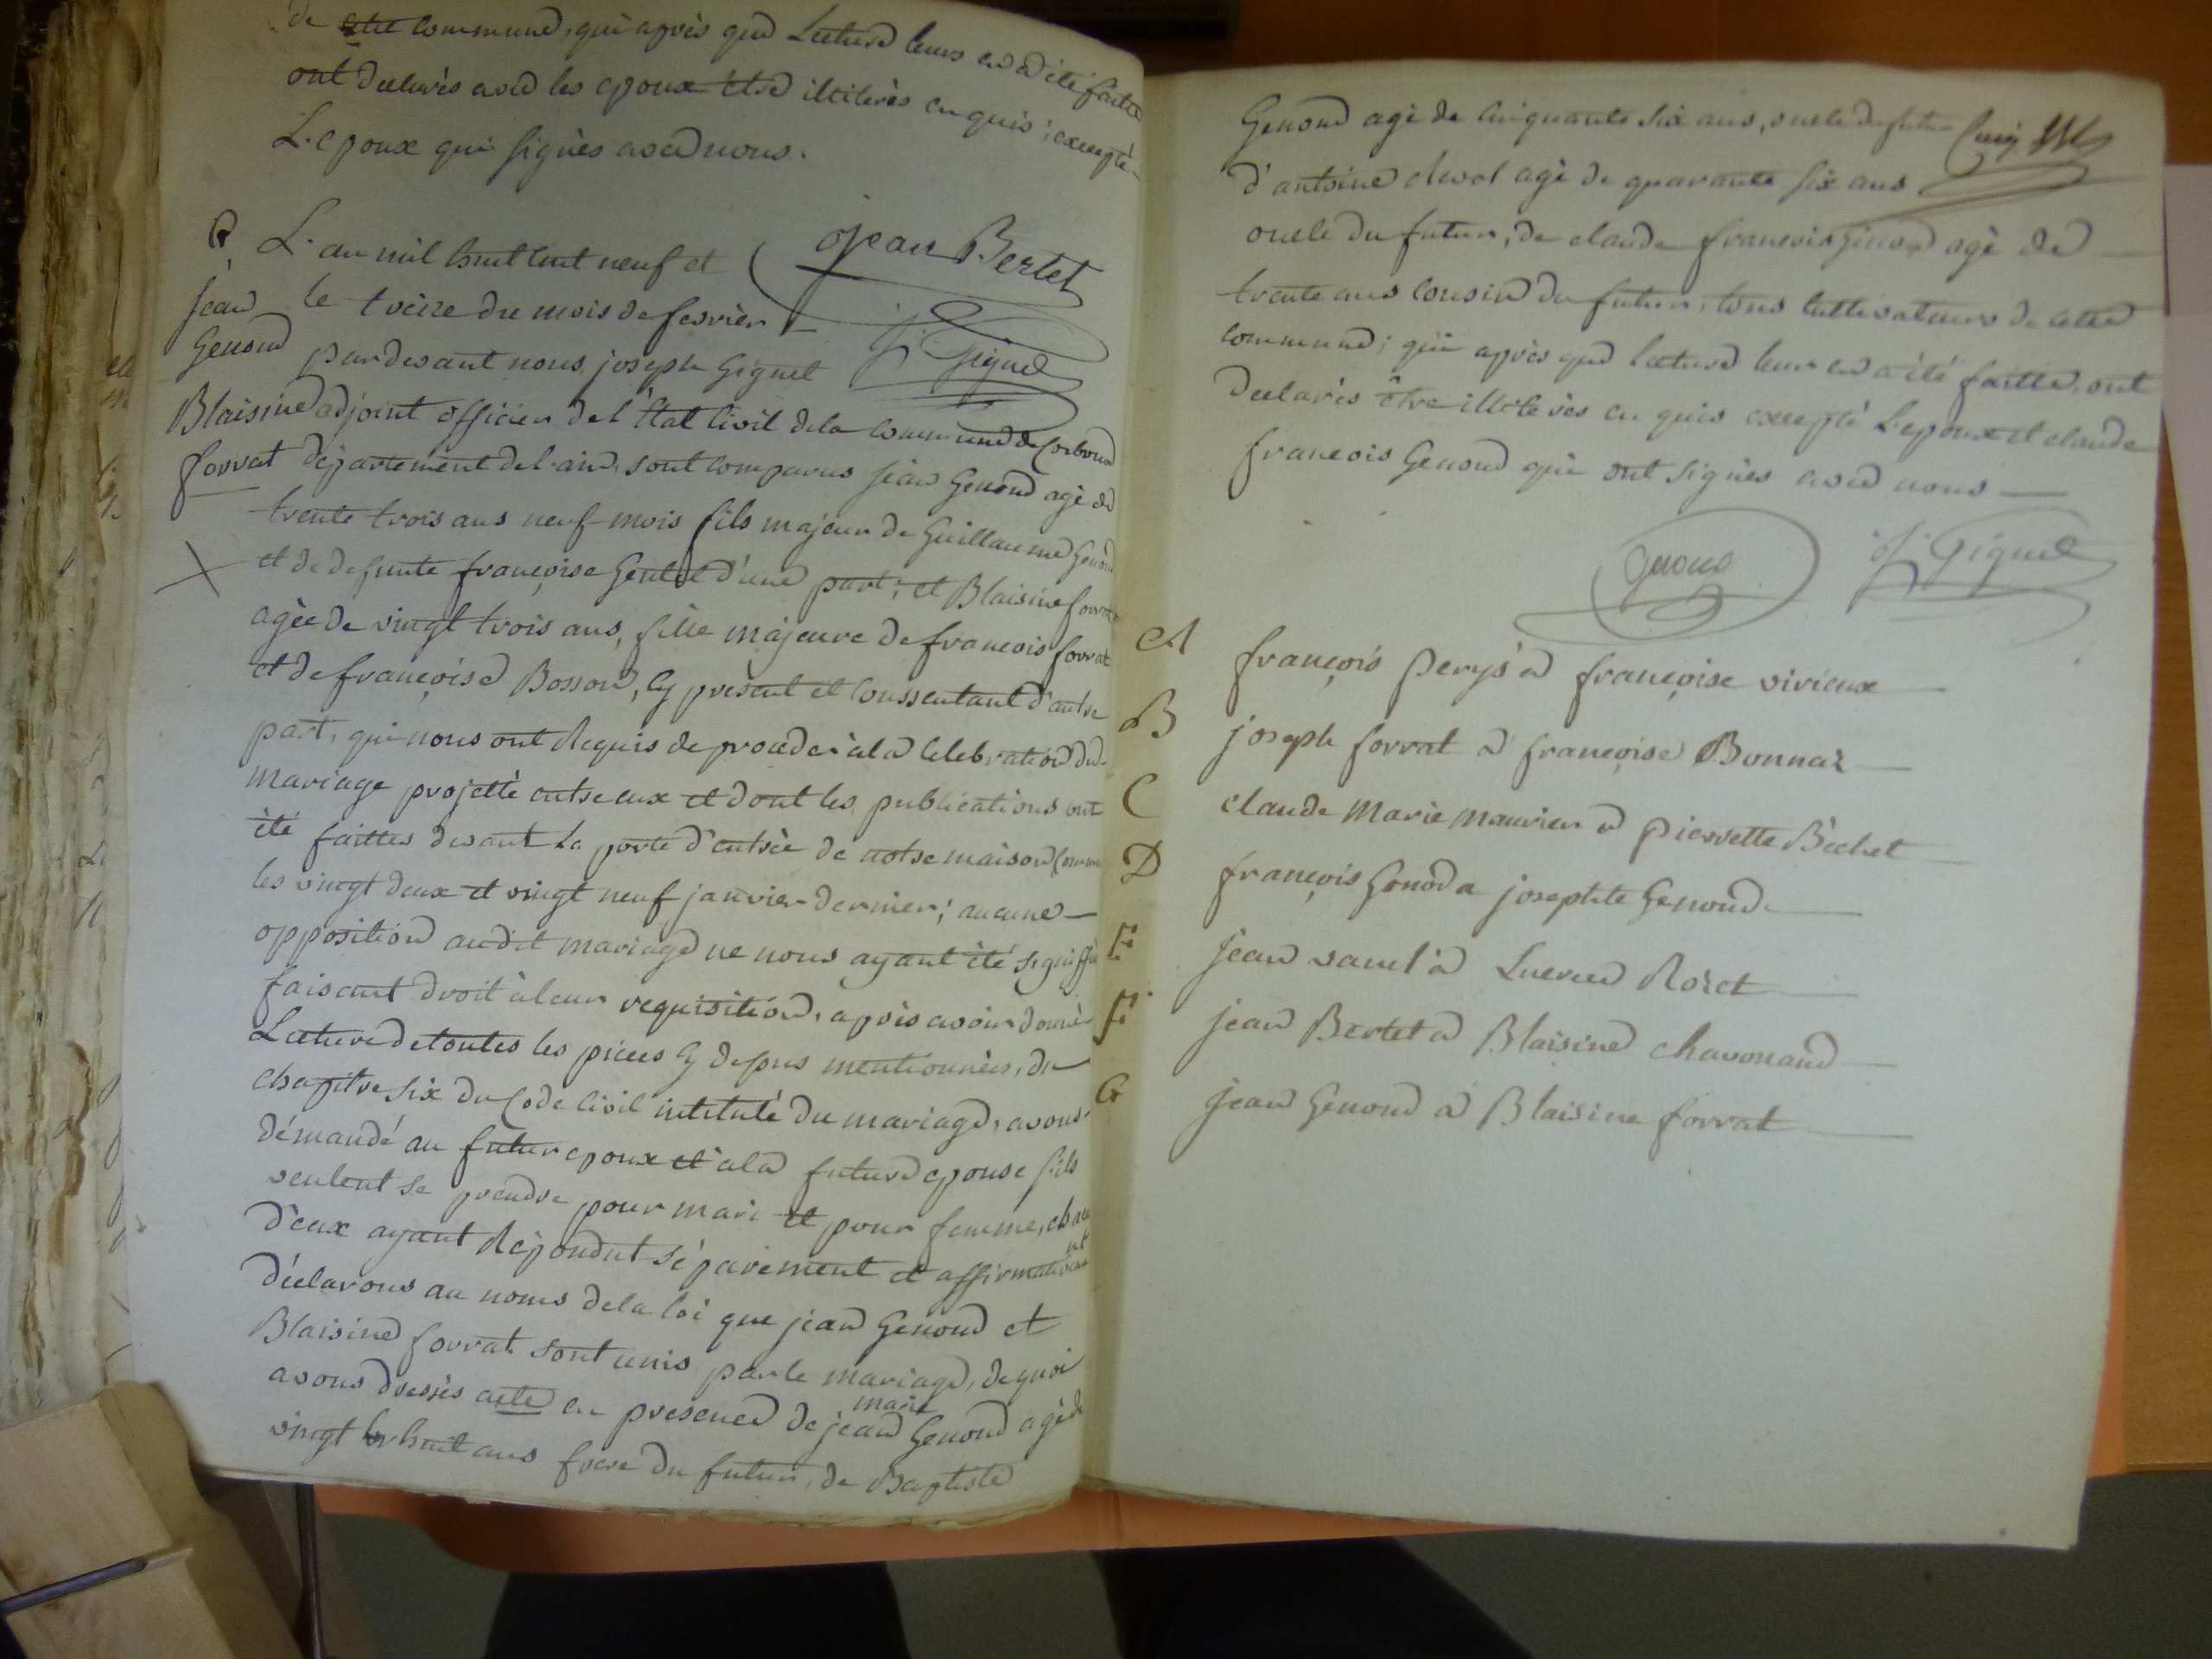 de cette commune, qui après que Lecture leurs en a été faitte
ont declarés avec les epoux etre illiterés en quis; excepté
L'epoux qui signés avec nous.
Jean Bertet
J. Giguet
G
jean
Genoud
Blaisine
forrat
L'an mil huit cent neuf et
le treize du mois de fevrier
pardevant nous joseph Giguet
adjoint officier de l'État Civil dela commune de Corbonod
département del'ain, sont comparus jean Genoud agé de
trente trois ans neuf mois fils majeur de Guillaume Genoud
et de defunte françoise Gentil d'une part; et Blaisine forrat
agée de vingt trois ans, fille majeure de francois forrat
et de françoise Bosson, Cy present et Conssentant d'autre
part, qui nous ont Requis de proceder àla Celebration du
mariage projetté entre eux et dont les publications ont
été faittes devant la porte d'entrée de notre maison Commune
les vingt deux et vingt neuf janvier dernier; aucune
opposition audit mariage ne nous ayant été signiffié
faisant droit à leur requisition, après avoir donné
Lecture de toutes les pieces Cy dessus mentionnées, du
chapitre six du Code Civil intitulé du mariage, avons
démandé au futur epoux et àla future epouse s'ils
veulent se prendre pour mari et pour femme, chacun
d'eux ayant Répondut séparement et affirmativement
déclarons au noms dela loi que jean Genoud et
Blaisine forrat sont unis par le mariage, de quoi
avons dressés acte en presence de jean marie Genoud agé de
vingt huit ans frere du futur, de Baptiste
Genoud agé de cinquante six ans, oncle du futur
d'antoine clusol agé de quarante six ans
oncle du futur, de claude francois Genoud agé de
trente ans cousin du futur, tous cultivateurs de cette
commune; qui après que lecture leur en a été faitte, ont
declarés être illiterés en quis excepté L'epoux et claude
francois Genoud qui ont signés avec nous
Genoud
J. Giguet
A françois perys à françoise virieux
B joseph forrat à françoise Bonnaz
C claude marie maurier à pierrette Béchet
D françois Gonod a josephte Genoud
E jean vauel à Lucrece Rozet
F jean Bertet à Blaisine chavonand
G jean Genoud à Blaisine forrat